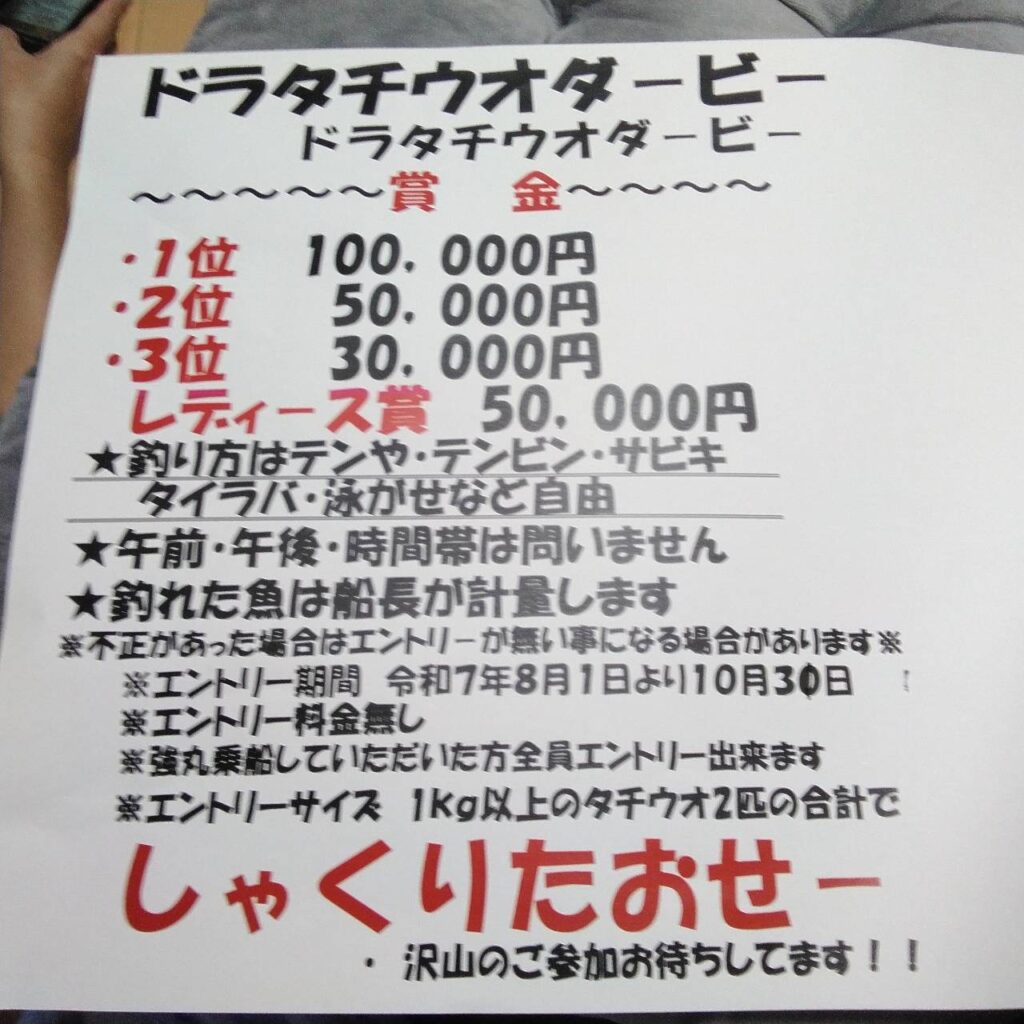 ドラタチウオダービー
ドラタチウオダービー
～～～～～賞　金～～～～
・1位　100，000円
・2位　50，000円
・3位　30，000円
レディース賞　50，000円
★釣り方はテンや・テンビン・サビキ
タイラバ・泳がせなど自由
★午前・午後・時間帯は問いません
★釣れた魚は船長が計量します
※不正があった場合はエントリーが無い事になる場合があります※
※エントリー期間　令和7年8月1日より10月30日
※エントリー料金無し
※強丸乗船していただいた方全員エントリー出来ます
※エントリーサイズ　1Kg以上のタチウオ2匹の合計で
しゃくりたおせー
・　沢山のご参加お待ちしてます！！